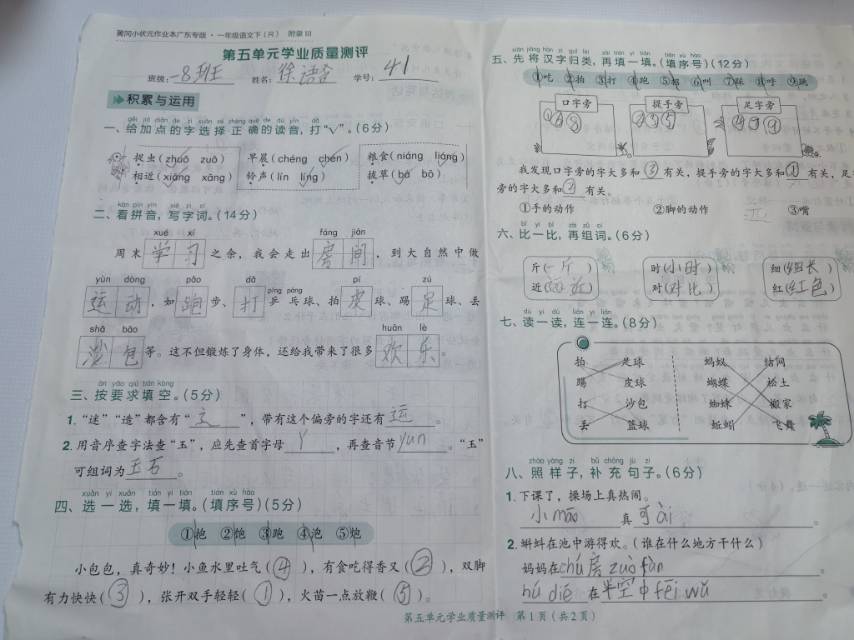 黄冈小状元作业本广东专版·一年级语文下(R) 附录Ⅲ
第五单元学业质量测评
班级: 一8班 姓名: 徐语 学号: 41
积累与运用
一、给加点的字选择正确的读音,打“√”。(6分)
捉虫(zhuō zuō) 早晨(chéng chén) 粮食(niáng liáng)
相近(xiāng xāng) 铃声(lín líng) 拔草(bá bō)
二、看拼音,写字词。(14分)
xué xí fáng jiān
周末 学习 之余,我会走出 房间 ,到大自然中做
yùn dòng pǎo dǎ pīng pāng pí zú
运动 ,如 跑 步、 打 乒乓球、拍 皮 球、踢 足 球、丢
shā bāo huān lè
沙包 等。这不但锻炼了身体,还给我带来了很多 欢乐 。
三、按要求填空。(5分)
1.“迷”“造”都含有“ 辶 ”,带有这个偏旁的字还有 运 。
2.用音序查字法查“玉”,应先查首字母 Y ,再查音节 yun 。“玉”
可组词为 玉石 。
四、选一选,填一填。(填序号)(5分)
①抱 ②饱 ③跑 ④泡 ⑤炮
小包包,真奇妙!小鱼水里吐气( ④ ),有食吃得香又( ② ),双脚
有力快快( ③ ),张开双手轻轻( ① ),火苗一点放鞭( ⑤ )。
五、先将汉字归类,再填一填。(填序号)(12分)
口字旁 提手旁 足字旁
我发现口字旁的字大多和 ③ 有关,提手旁的字大多和 ① 有关,足
旁的字大多和 ② 有关。
①手的动作 ②脚的动作 ③嘴
六、比一比,再组词。(6分)
斤(一斤) 时(小时) 细(细长)
近(远近) 对(对比) 红(红色)
七、读一读,连一连。(8分)
拍 足球 蚂蚁 结网
踢 皮球 蝴蝶 松土
打 沙包 蜘蛛 搬家
丢 篮球 蚯蚓 飞舞
八、照样子,补充句子。(6分)
1.下课了,操场上真热闹。
小māo 真可ài 。
2.蝌蚪在池中游得欢。(谁在什么地方干什么)
妈妈在chú房zuò fàn 。
hú dié 在半空中fēi wǔ 。
第五单元学业质量测评 第1页(共2页)